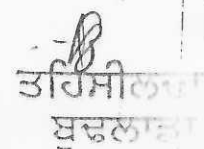 ਤਹਿਸੀਲਦਾਰ
ਬੁਢਲਾਡਾ